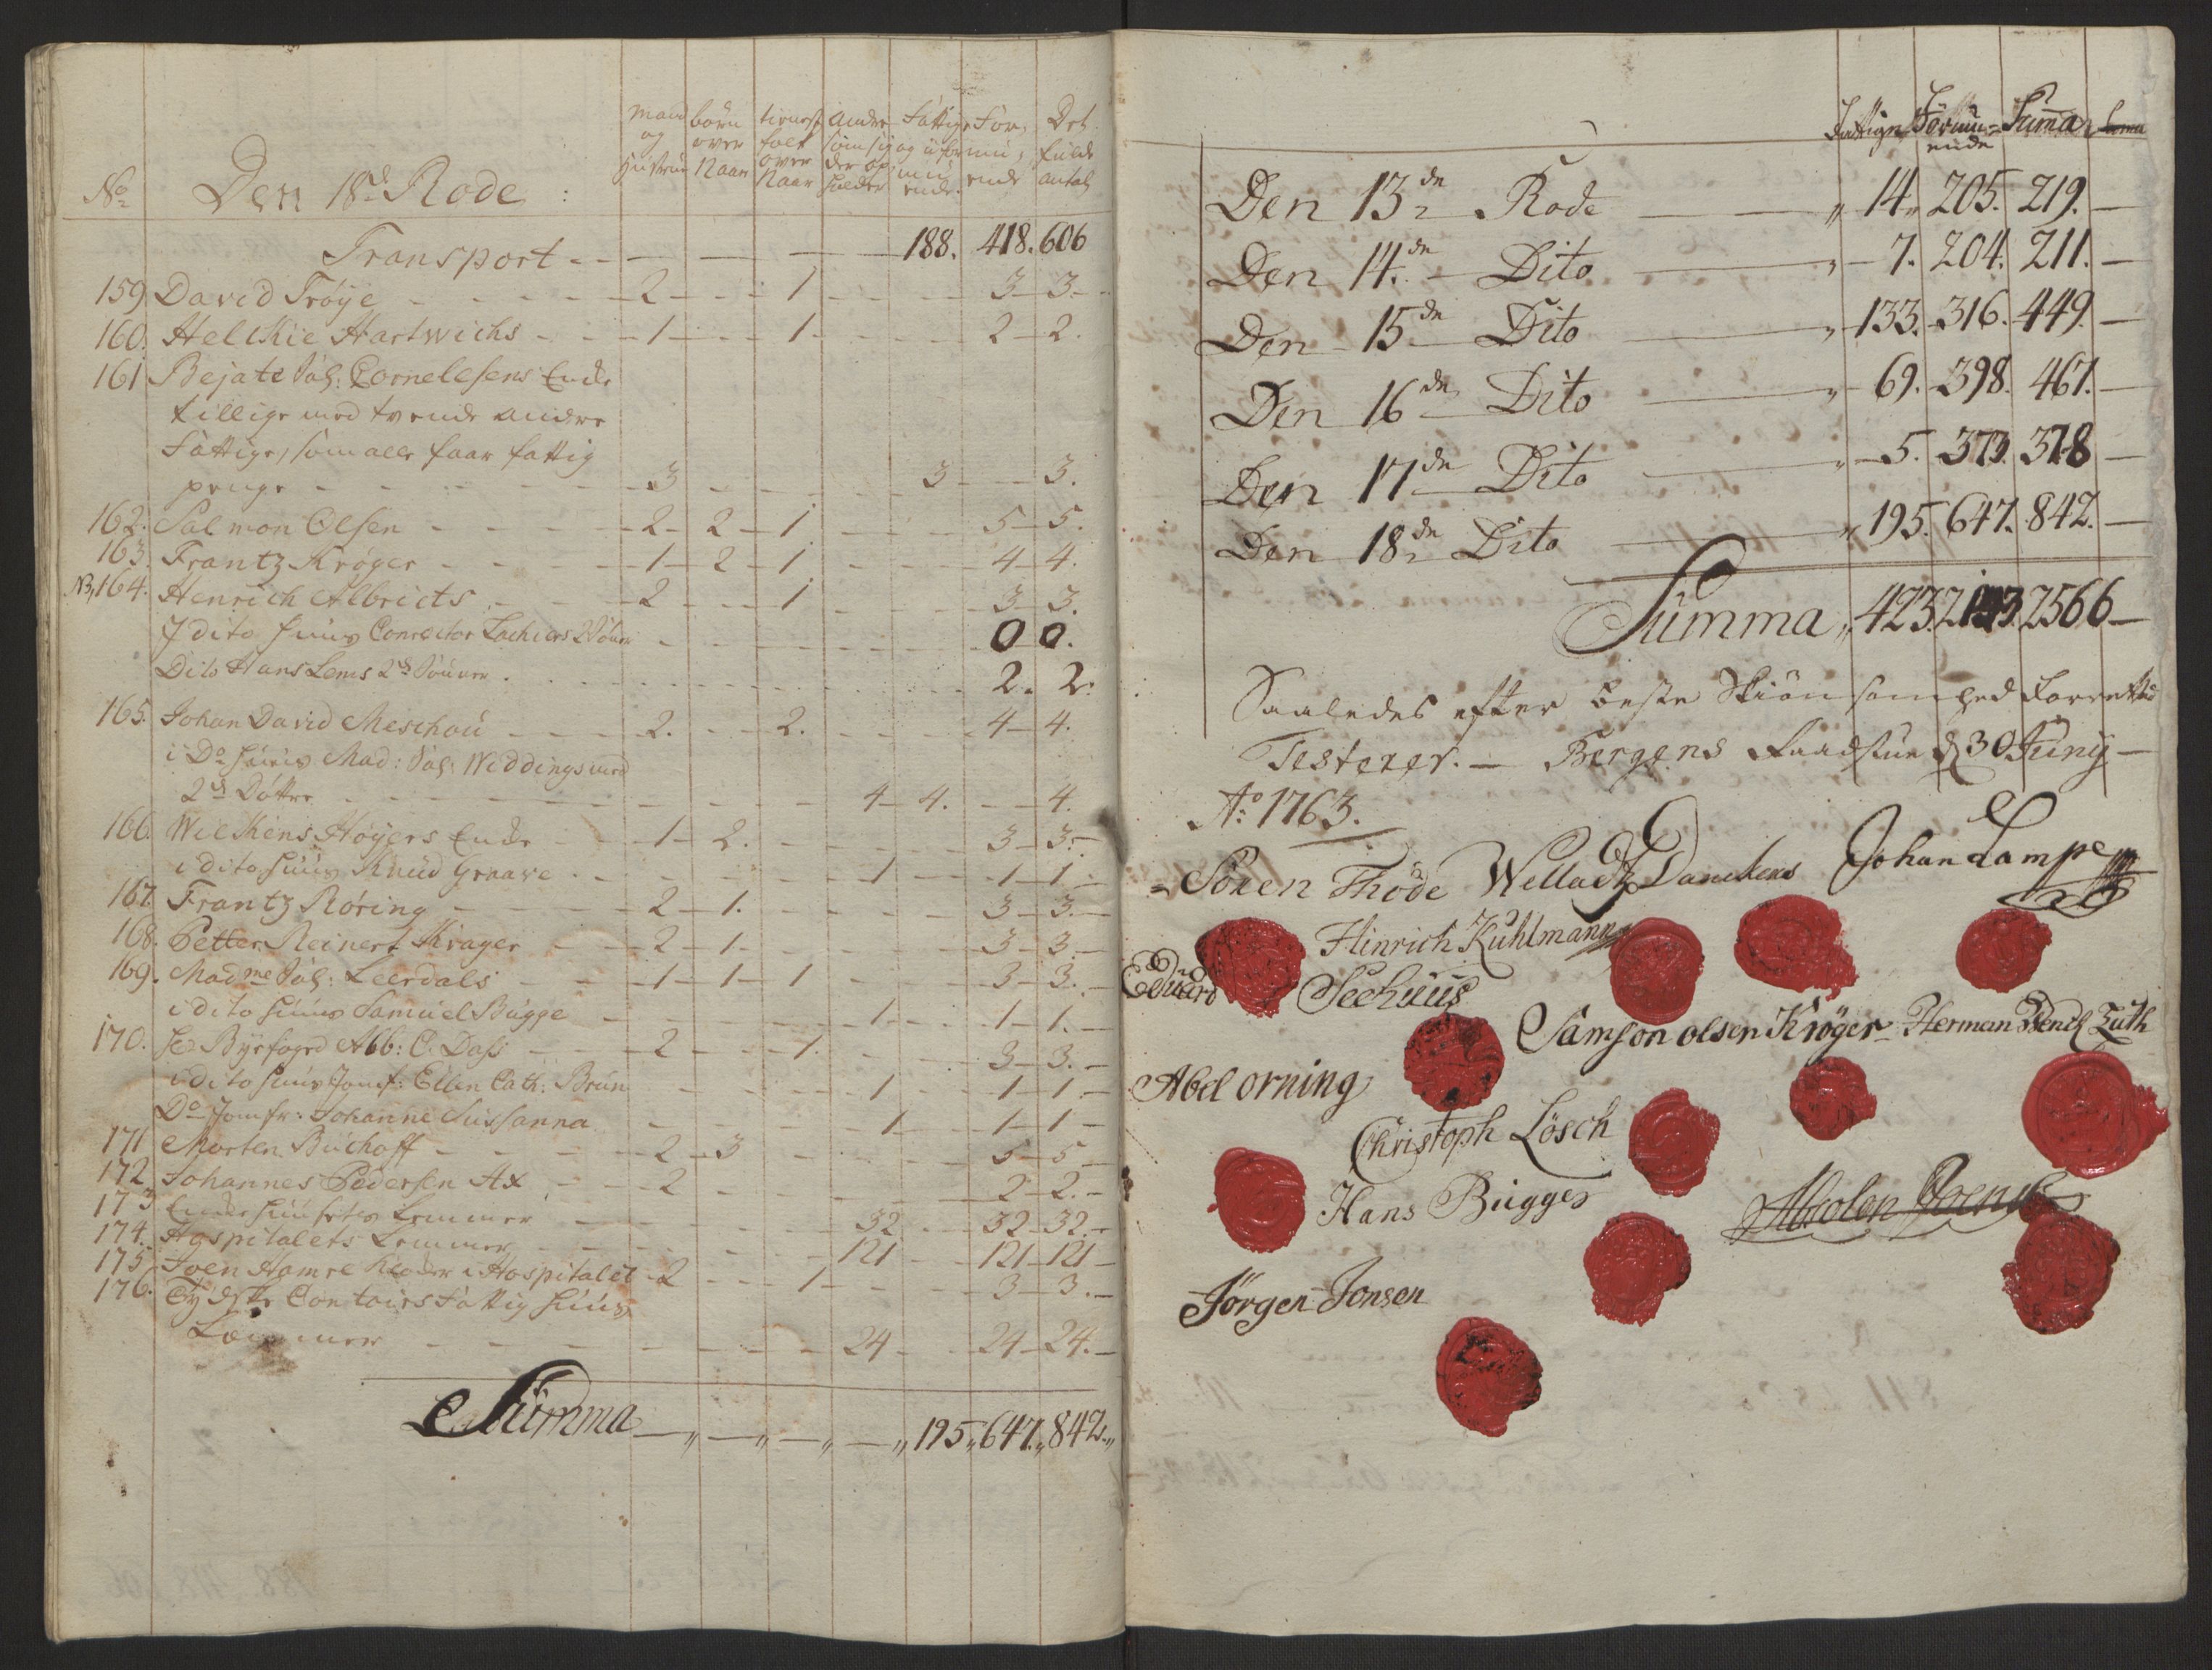 No Den 18de Rode :
mand og Hustrue | børn over 12 aar | tienest folk over 12 aar | andre som sig der op holder | Fattige og uformu ende | For mu ende | Det fulde antal
Transport - - 188. 418. 606
159 David Trøye - - 2 - 1 - 3 - 3 -
160. Helchie Hartwichs - - 1 - 1 - 2 - 2.
161 Bejate Sal: Cornelesens Enke
tillige med tvende andre
Fattige, som alle faar fattig
penge - - 3 - 3 - 3.
162. Salmon Olsen - - 2 - 2 - 1 - 5 - 5.
163. Frantz Krøger - - 1 - 2 - 1 - 4 - 4.
NB, 164. Henrich Albricts - - 2 - 1 - 3 - 3.
I dito Huus Conrector Lachiers 2 Sønner - 0 0.
Dito Hans Lems 2de Sønner . - 2. 2.
165. Johan David Meschou - - 2. - 2. - 4 - 4.
i Do Huus Mad: Sal: Weddings med
2de Døttre - - 4 - 4. - 4.
166. Wilkens Høyers Enke - 1 - 2. - 3 - 3. -
i dito Huus Knud Graave . - 1 - 1 - 1 -
167. Frantz Røring - 2 - 1. - 3 - 3. -
168. Petter Reinert Krager - 2 - 1 - 3 - 3 -
169. Madme Sal: Leerdals - 1 - 1 - 1 - 3 - 3. -
i dito Huus Samuel Bugge - 1 - 1 - 1. -
170. Hr Byefoged Abb: C. Dass - 2 - 1. - 3 - 3. -
i dito Huus Jomf: Ellen Cath: Brun - 1 - 1 - 1 -
Do Jomfr: Johanne Sussanna - 1 - 1 - 1 -
171 Morten Buchoff - 2 - 3 - 5 - 5 -
172 Johannes Pedersen Ax - 2 - 2 - 2. -
173 Enke Huusets Lemmer - 32 - 32 - 32. -
174. Hospitalets Lemmer - 121 - 121 - 121 -
175 Iven Hamre Kloder i Hospitalet - 2 - 1 - 3 - 3. -
176. Tydske Contoirs Fattig Huus
Lemmer - 24 - 24 - 24. -
Summa - 195, 647, 842.
Fattige Formu=ende Summa
Den 13de Rode - 14, 205. 219. -
Den 14de Dito - 7. 204. 211. -
Den 15de Dito - 133. 316. 449. -
Den 16de Dito - 69. 398. 467. -
Den 17de Dito - 5. 373. 378 -
Den 18de Dito - 195. 647. 842. -
Summa, 423. 2143. 2566 -
Saaledes efter beste Skiønsomhed Forrettet
Testerer. - Bergens Raadstue d 30 Juny -
Ao 1763.
Soren Thode Welladtz Danckers Johan Lampe
Hinrich Kuhlmann
Eduard Seehuus
Samson olsen Krøger Herman Bench Zuth
Abel orning
Christoph Lösch
Hans Bugges
Jörgen Jonsen